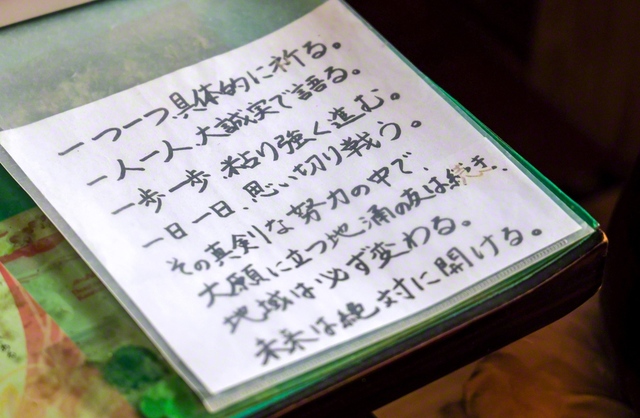 一つ一つ具体的に祈る。
一人一人大誠実で語る。
一歩一歩粘り強く進む。
一日一日、思い切り戦う。
その真剣な努力の中で
大願に立つ地涌の友は続き、
地域は必ず変わる。
未来は絶対に開ける。